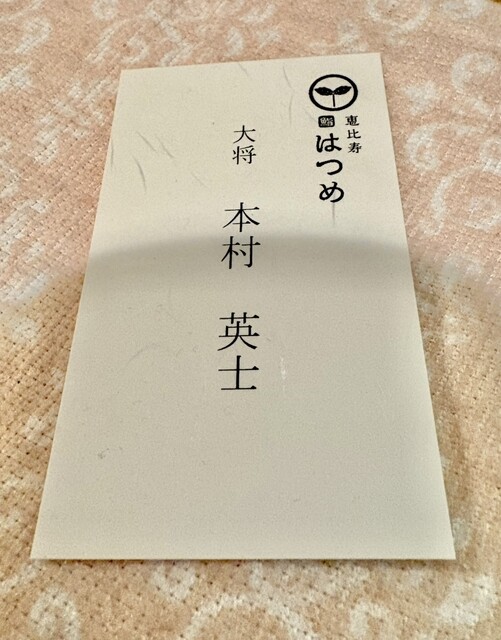 恵比寿
鮨 はつめ
大将 本村 英士